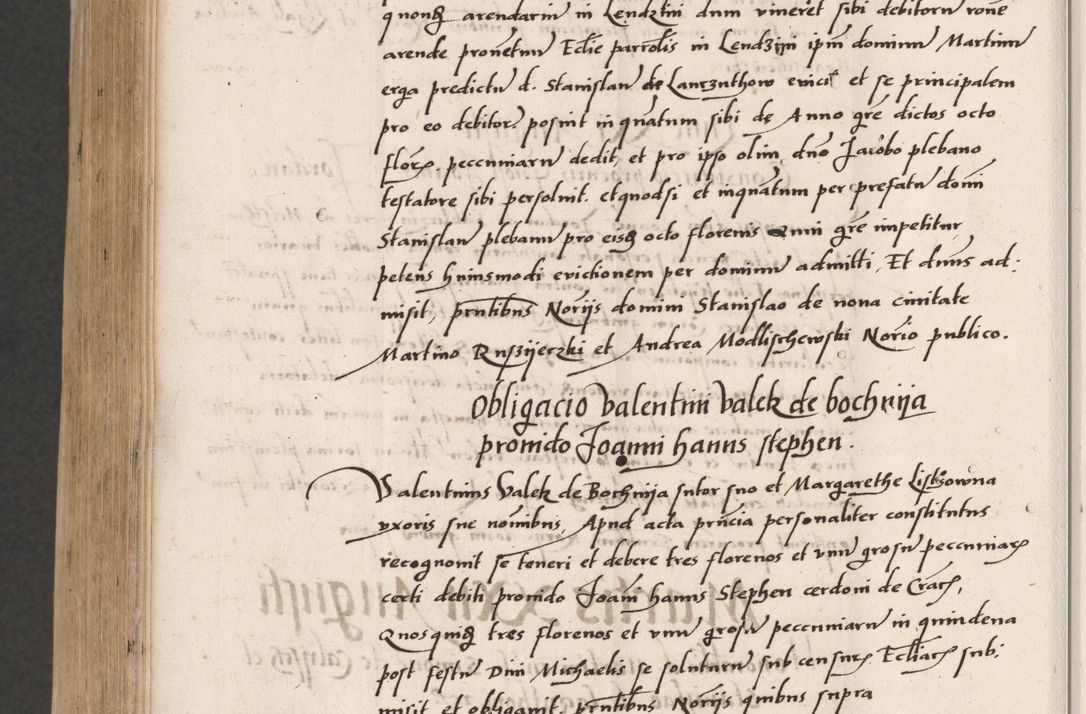 quonq arendarin in Lendztini dum viveret sibi debitorn rone
arende pronetnw Eclie parrolis in Lendzijn ipm dominu Martinu
erga predictu d. Stanislau de Lanczuthow evicit et se principalem
pro eo debitore posuit in quatum sibi de Anno qre dictos octo
floro pecuniaru dedit, et pro ipso olim dno Jacobo plebano
testatore sibi persoluit. etquodsi et inquatum per prefatu domi
Stanislau plebanu pro eisq octo florenis qre impetitur
petens huiusmodi evictionem per dominu admitti, Et dnus ad:
misit, prntibus Norijs domini Stanislao de nova civitate
Martino Ruszijeczki et Andrea Modlischewski Norio publico.
Obligacio Valentini Valek de bochnija
provido Joanni hanns stephen.
Valentinus Valek de Bochnija sutor suo et Margarethe Listhowna
vxoris sue nominibus, Apud acta prncia personaliter constitutus
recognouit se teneri et debere tres florenos et vnu grosu pecuniar
certi debiti prouido Joani hanns Stephen cerdoni de Crac,
Quosquiq tres florenos et vnu grosu pecuniaru in quindena
post festu Diui Michaelis se soluturu sub censur Ecliar sub:
misit et obligauit, prntibus Norijs quibus supra